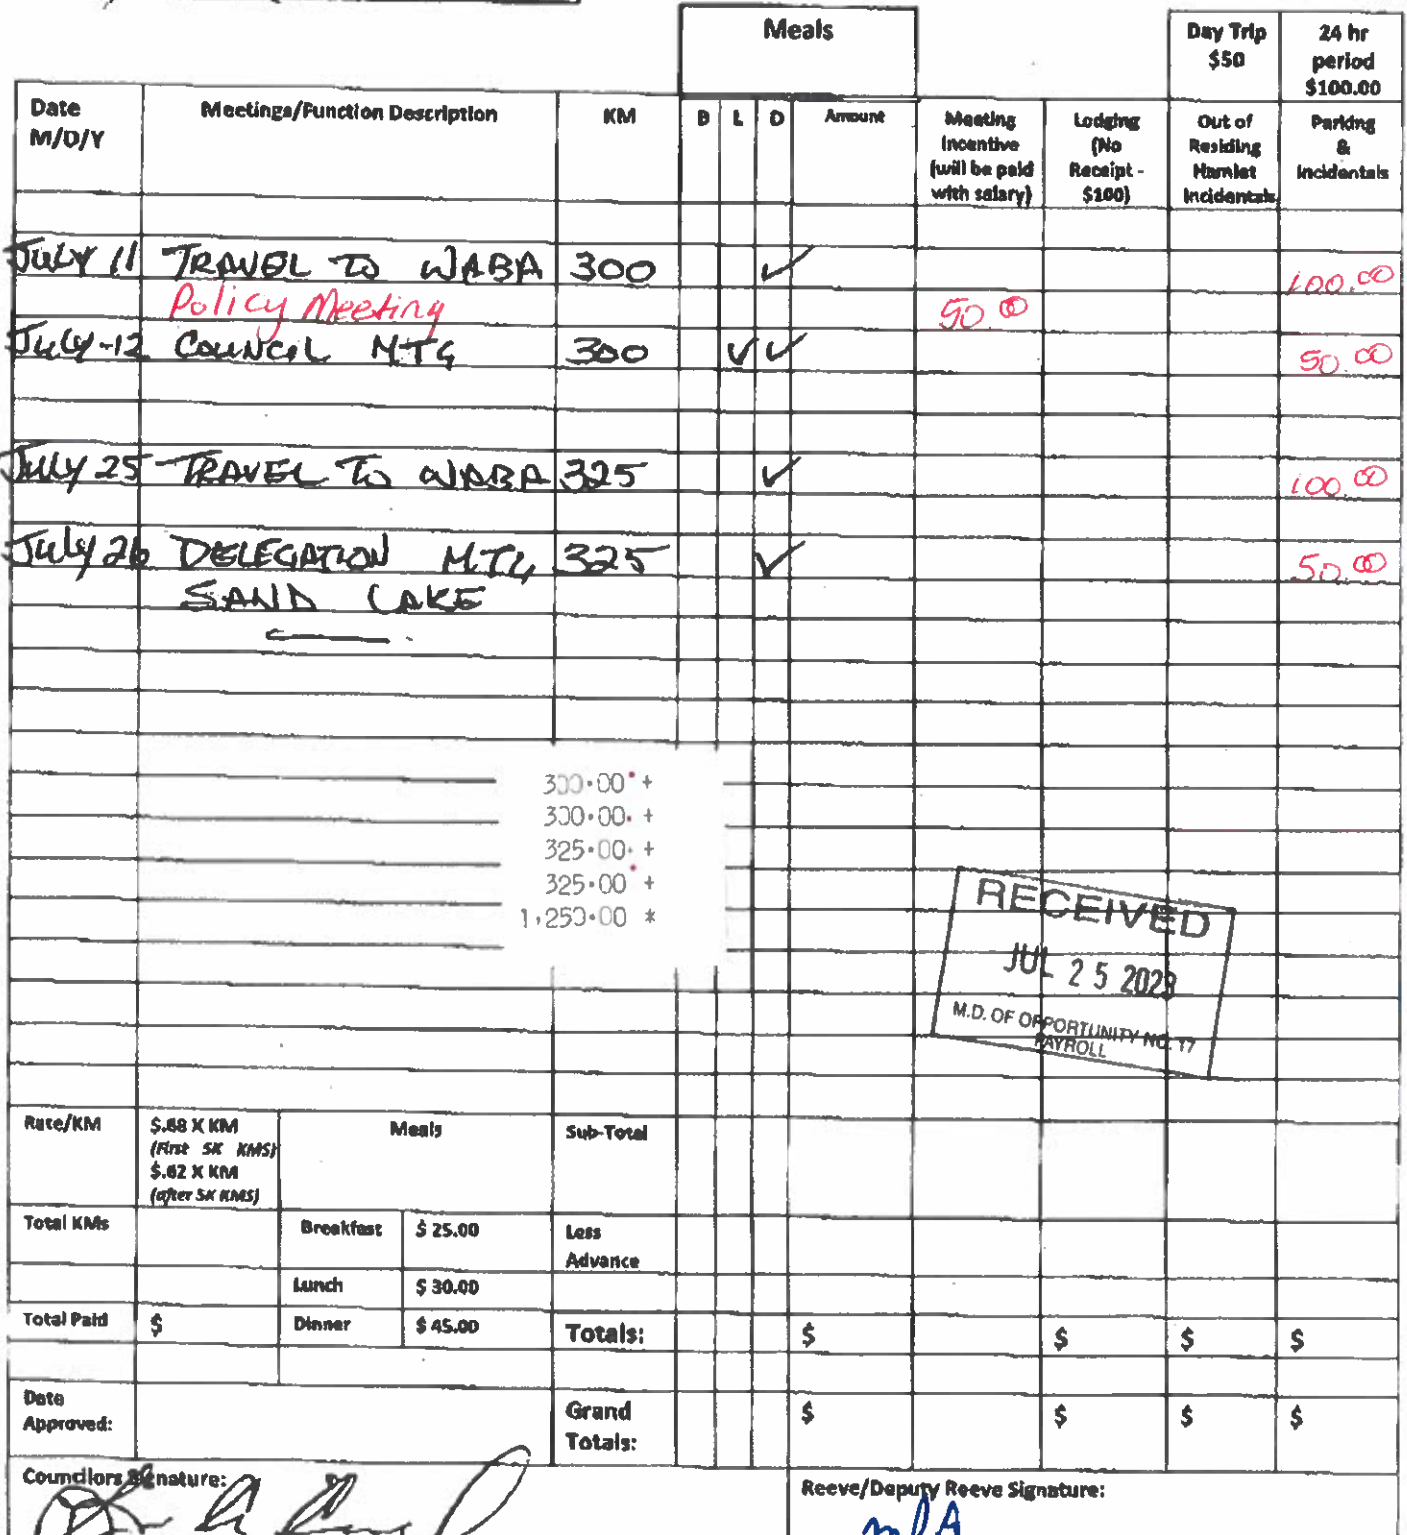 Meals
Day Trip $50
24 hr period $100.00
Date M/D/Y
Meetings/Function Description
KM
B L D Amount
Meeting Incentive (will be paid with salary)
Lodging (No Receipt - $100)
Out of Residing Hamlet Incidentals
Parking & Incidentals
July 11 TRAVEL TO WABA 300 ✓ 100.00
Policy Meeting 50.00
July-12 COUNCIL MTG 300 ✓ ✓ 50.00
July 25 TRAVEL TO WABA 325 ✓ 100.00
July 26 DELEGATION MTG 325 ✓ 50.00
SAND LAKE
300.00 +
300.00 +
325.00 +
325.00 +
1,250.00 *
RECEIVED
JUL 25 2023
M.D. OF OPPORTUNITY NO. 17
PAYROLL
Rate/KM
$.68 X KM
(First 5K KMS)
$.62 X KM
(after 5K KMS)
Meals
Sub-Total
Total KMs
Breakfast $ 25.00
Less Advance
Lunch $ 30.00
Total Paid $
Dinner $ 45.00
Totals: $ $ $ $
Date Approved:
Grand Totals: $ $ $ $
Councilors Signature:
Reeve/Deputy Reeve Signature: